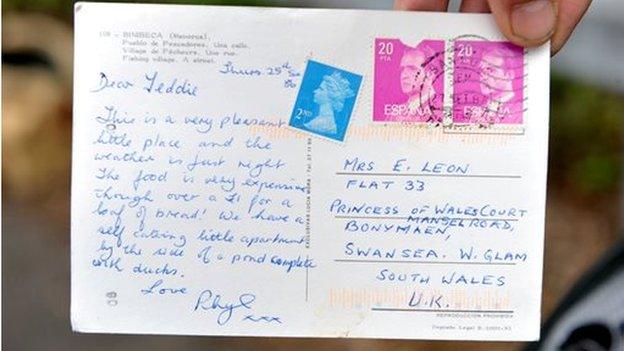 108 - BINIBECA (Menorca)
Pueblo de Pescadores. Una calle.
Village de Pêcheurs. Une rue.
Fishing village. A street.
Thurs. 25th
Dear Teddie
This is a very pleasant
little place and the
weather is just right
The food is very expensive
though over a £1 for a
loaf of bread! We have a
self catering little apartment
by the side of a pond complete
with ducks.
Love
Rhyl
xxx
2ND
20
PTA
ESPAÑA
20
ESPAÑA
MRS E. LEON
FLAT 33
PRINCESS OF WALES COURT
MANSEL ROAD,
BONYMAEN,
SWANSEA. W. GLAM
SOUTH WALES
U.K.
REPRODUCCION PROHIBIDA